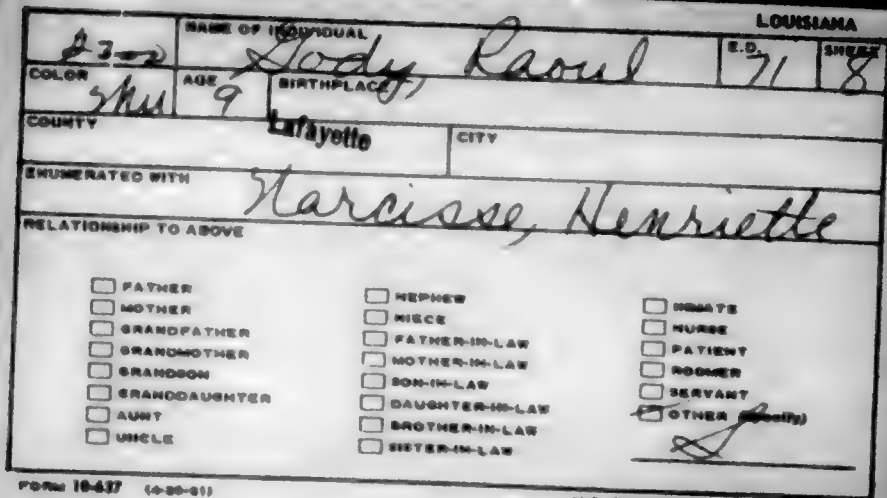 LOUISIANA
NAME OF INDIVIDUAL
Gody, Raoul
E.D.
71
SHEET
8
COLOR
Mu
AGE
9
BIRTHPLACE
COUNTY
Lafayette
CITY
ENUMERATED WITH
Narcisse, Henriette
RELATIONSHIP TO ABOVE
FATHER
MOTHER
GRANDFATHER
GRANDMOTHER
GRANDSON
GRANDDAUGHTER
AUNT
UNCLE
NEPHEW
NIECE
FATHER-IN-LAW
MOTHER-IN-LAW
SON-IN-LAW
DAUGHTER-IN-LAW
BROTHER-IN-LAW
SISTER-IN-LAW
INMATE
NURSE
PATIENT
ROOMER
SERVANT
OTHER (Specify)
S
FORM 10-637 (6-20-61)